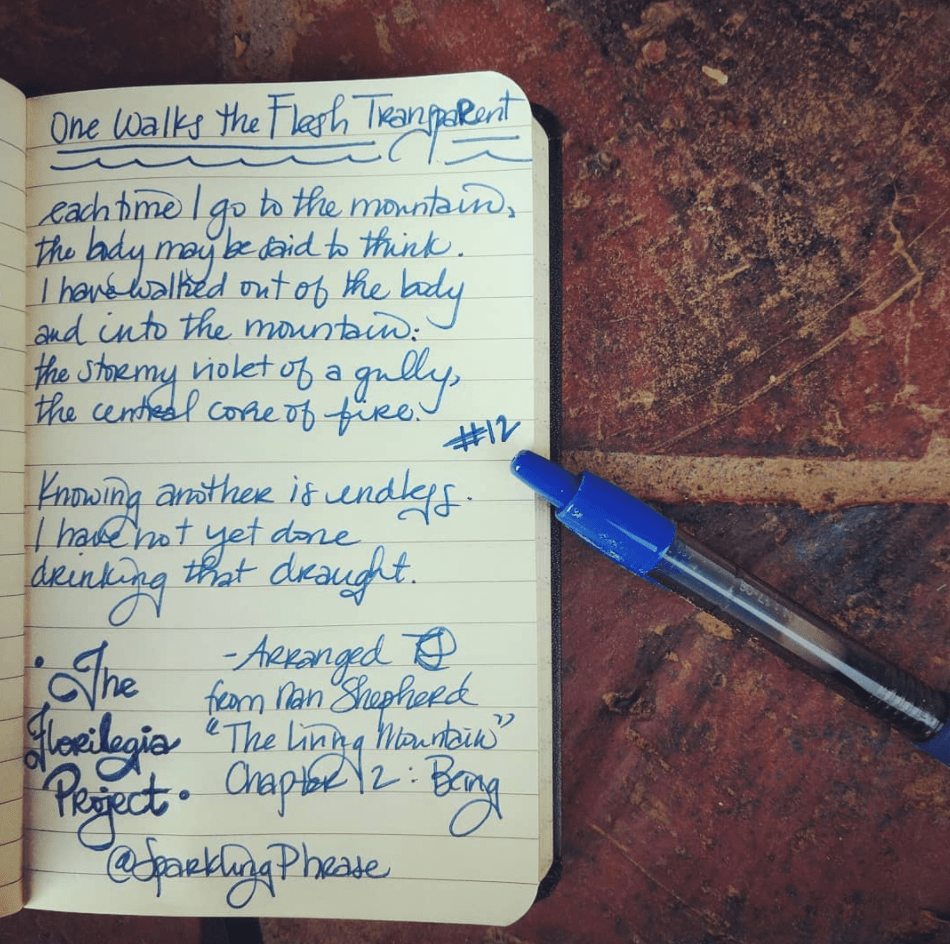 One Walks the Flesh Transparent
each time I go to the mountain,
the body may be said to think.
I have walked out of the body
and into the mountain:
the stormy violet of a gully,
the central core of fire.
#12
Knowing another is endless.
I have not yet done
drinking that draught.
• The
Florilegia
Project •
- Arranged
from Nan Shepherd
"The Living Mountain"
Chapter 12: Being
@SparklingPhrase